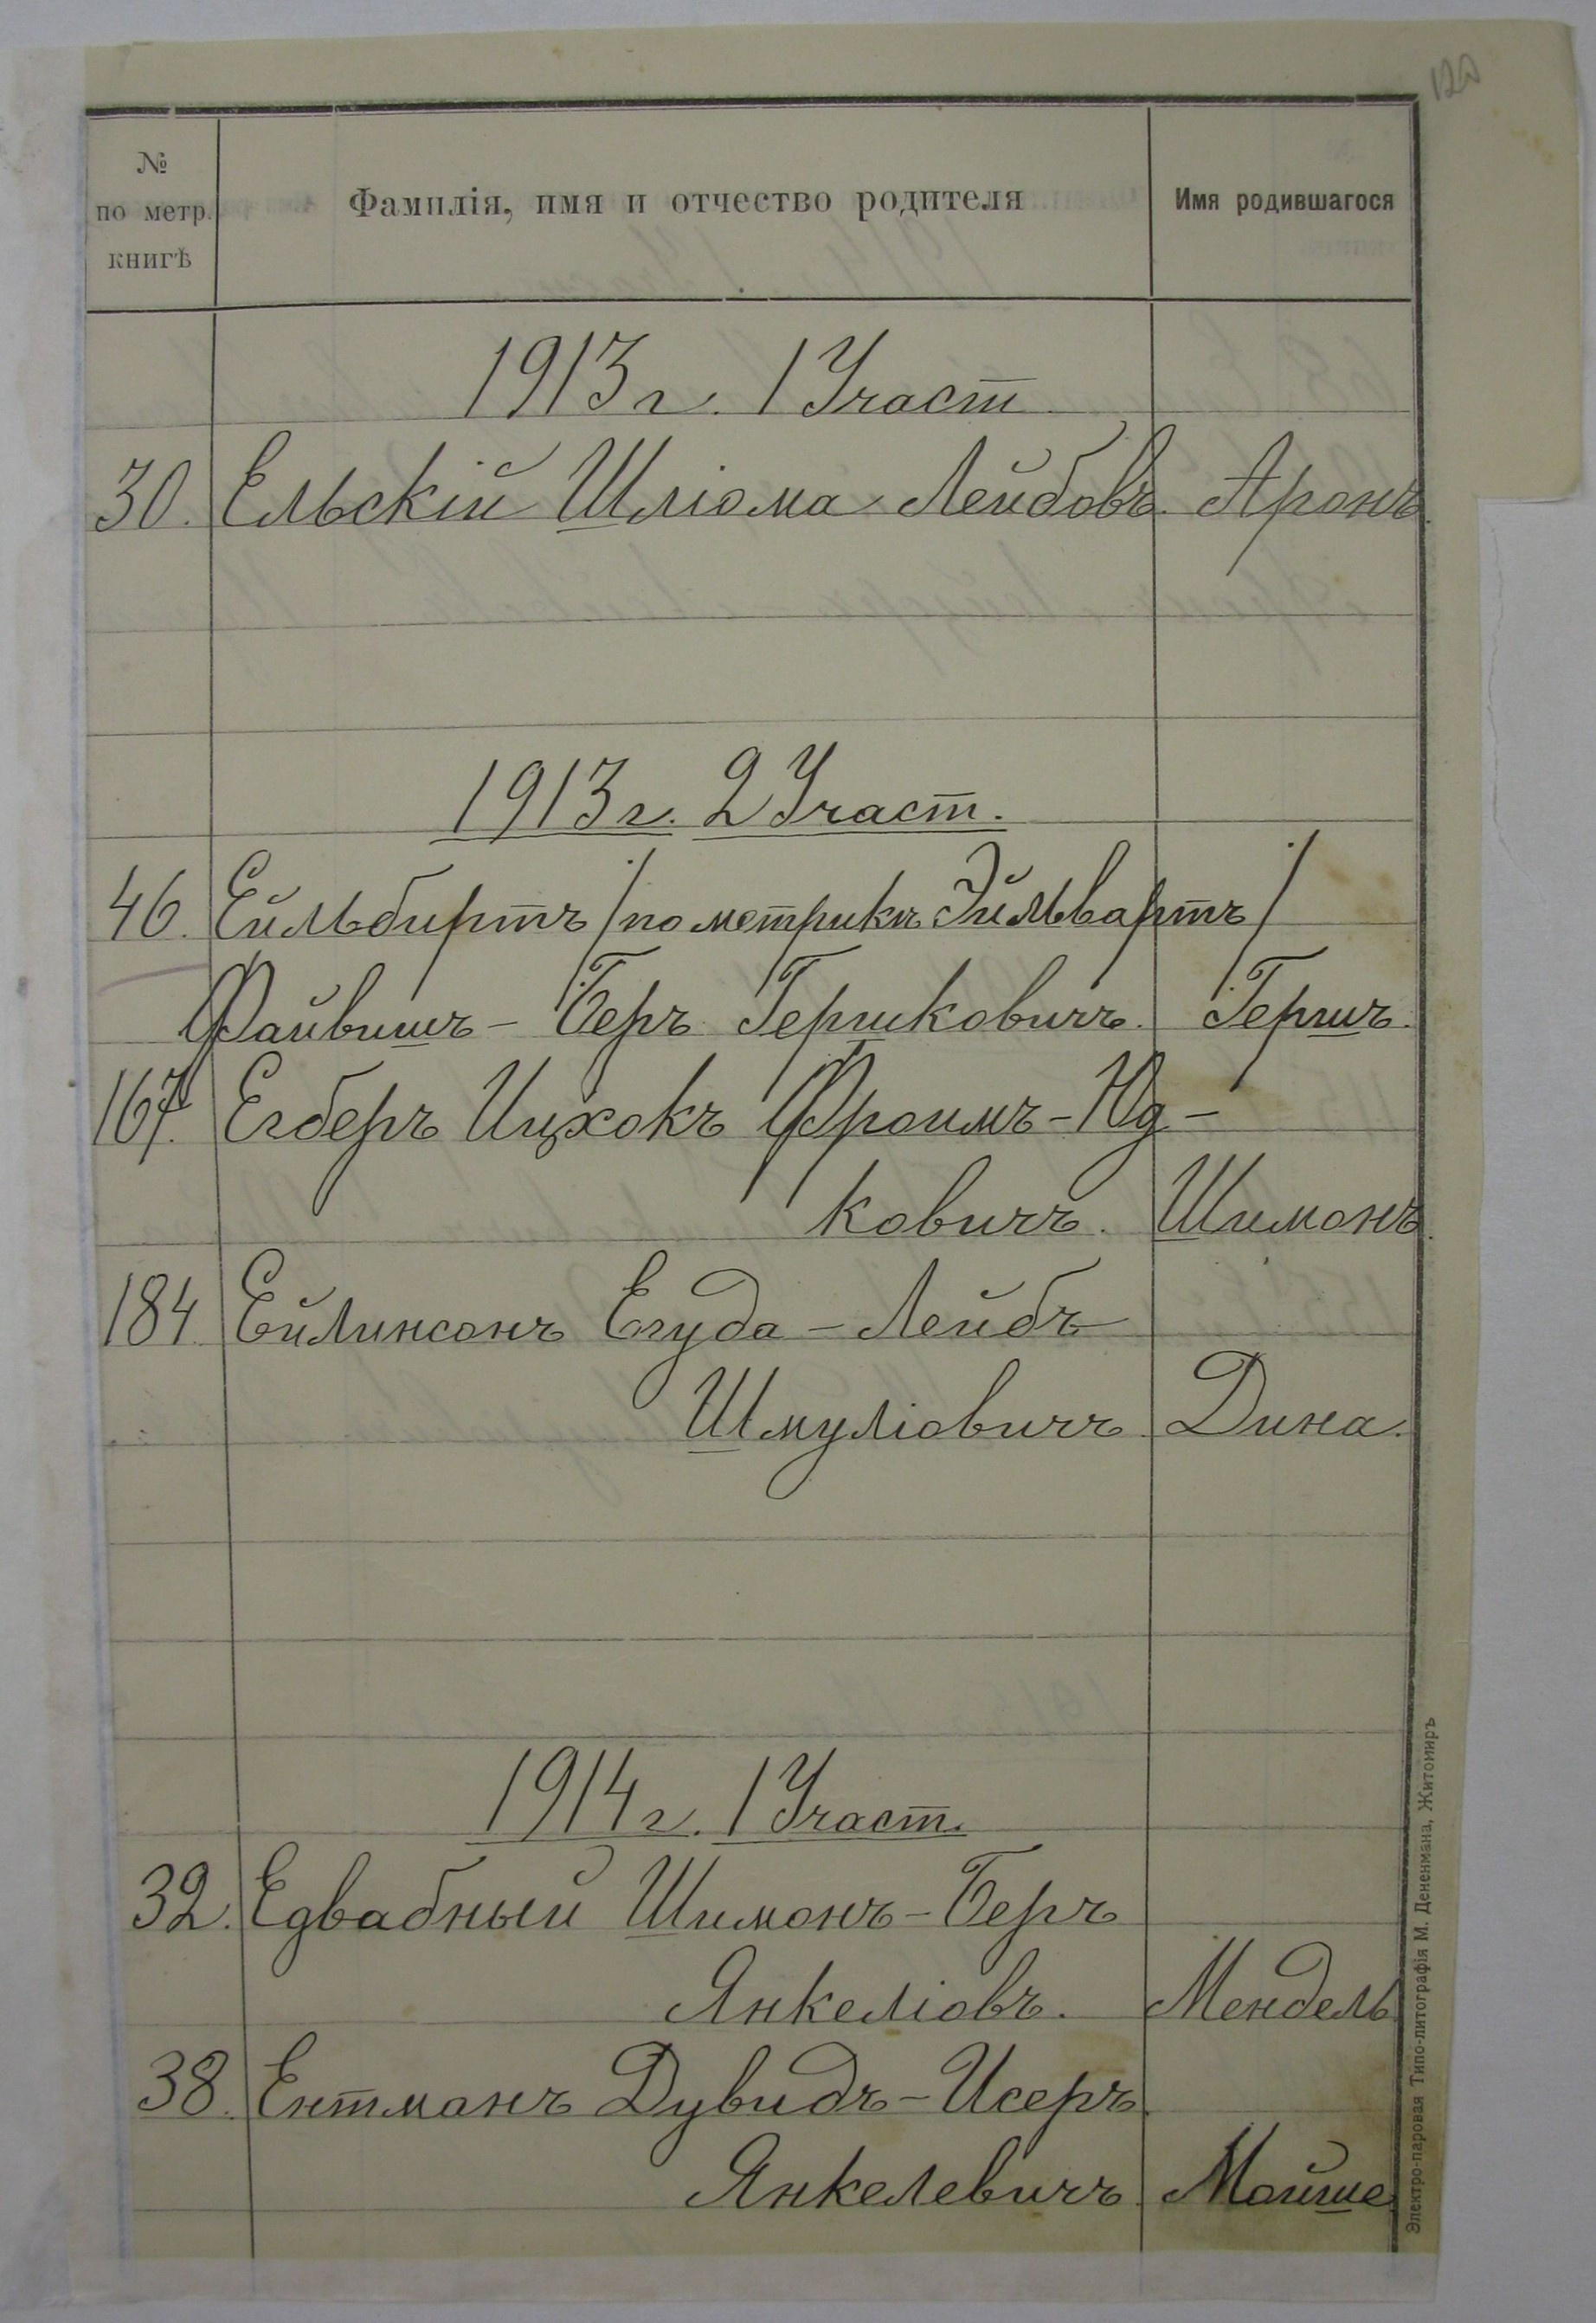 120
№
по метр.
книгѣ
Фамилія, имя и отчество родителя
Имя родившагося
1913 г. 1 Участ
30. Ельскій Шліома Лейбовъ. Аронъ.
1913 г. 2 Участ.
46. Ейльбиртъ /по метрикѣ Эйльвартъ/
Файвишъ - Беръ Гершковичъ. Гершъ.
167. Егберъ Ицхокъ Фроимъ-Юд-
ковичъ. Шимонъ.
184. Ейлинсонъ Егуда - Лейбъ
Шмуліовичъ. Дина.
1914 г. 1 Участ.
32. Едвабный Шимонъ-Беръ
Янкеліовъ. Мендель
38. Ентманъ Дувидъ-Исеръ
Янкелевичъ. Мойше
Электро-паровая Типо-литографія М. Дененмана, Житомиръ